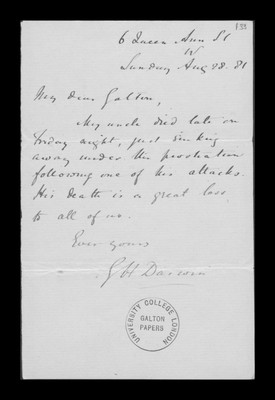 133
6 Queen Ann St
W
Sunday Aug 28. 81
My dear Galton,
My uncle died late on
Friday night, just sinking
away under the prostration
following one of his attacks.
His death is a great loss
to all of us.
Ever yours
G H Darwin
UNIVERSITY COLLEGE LONDON
GALTON
PAPERS